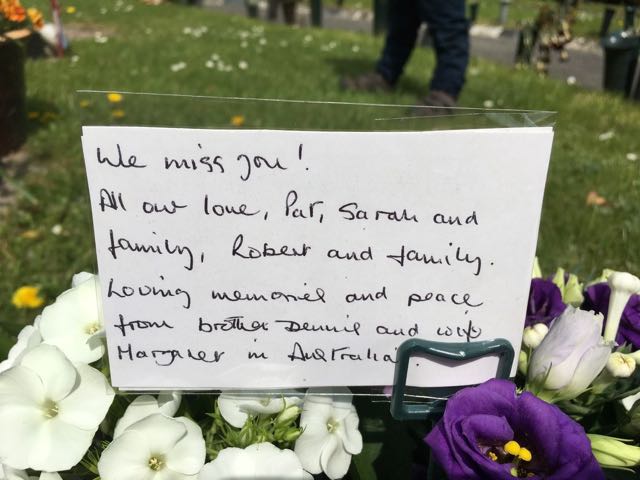 We miss you!
All our love, Pat, Sarah and
family, Robert and family.
Loving memories and peace
from brother Dennis and wife
Margaret in Australia.